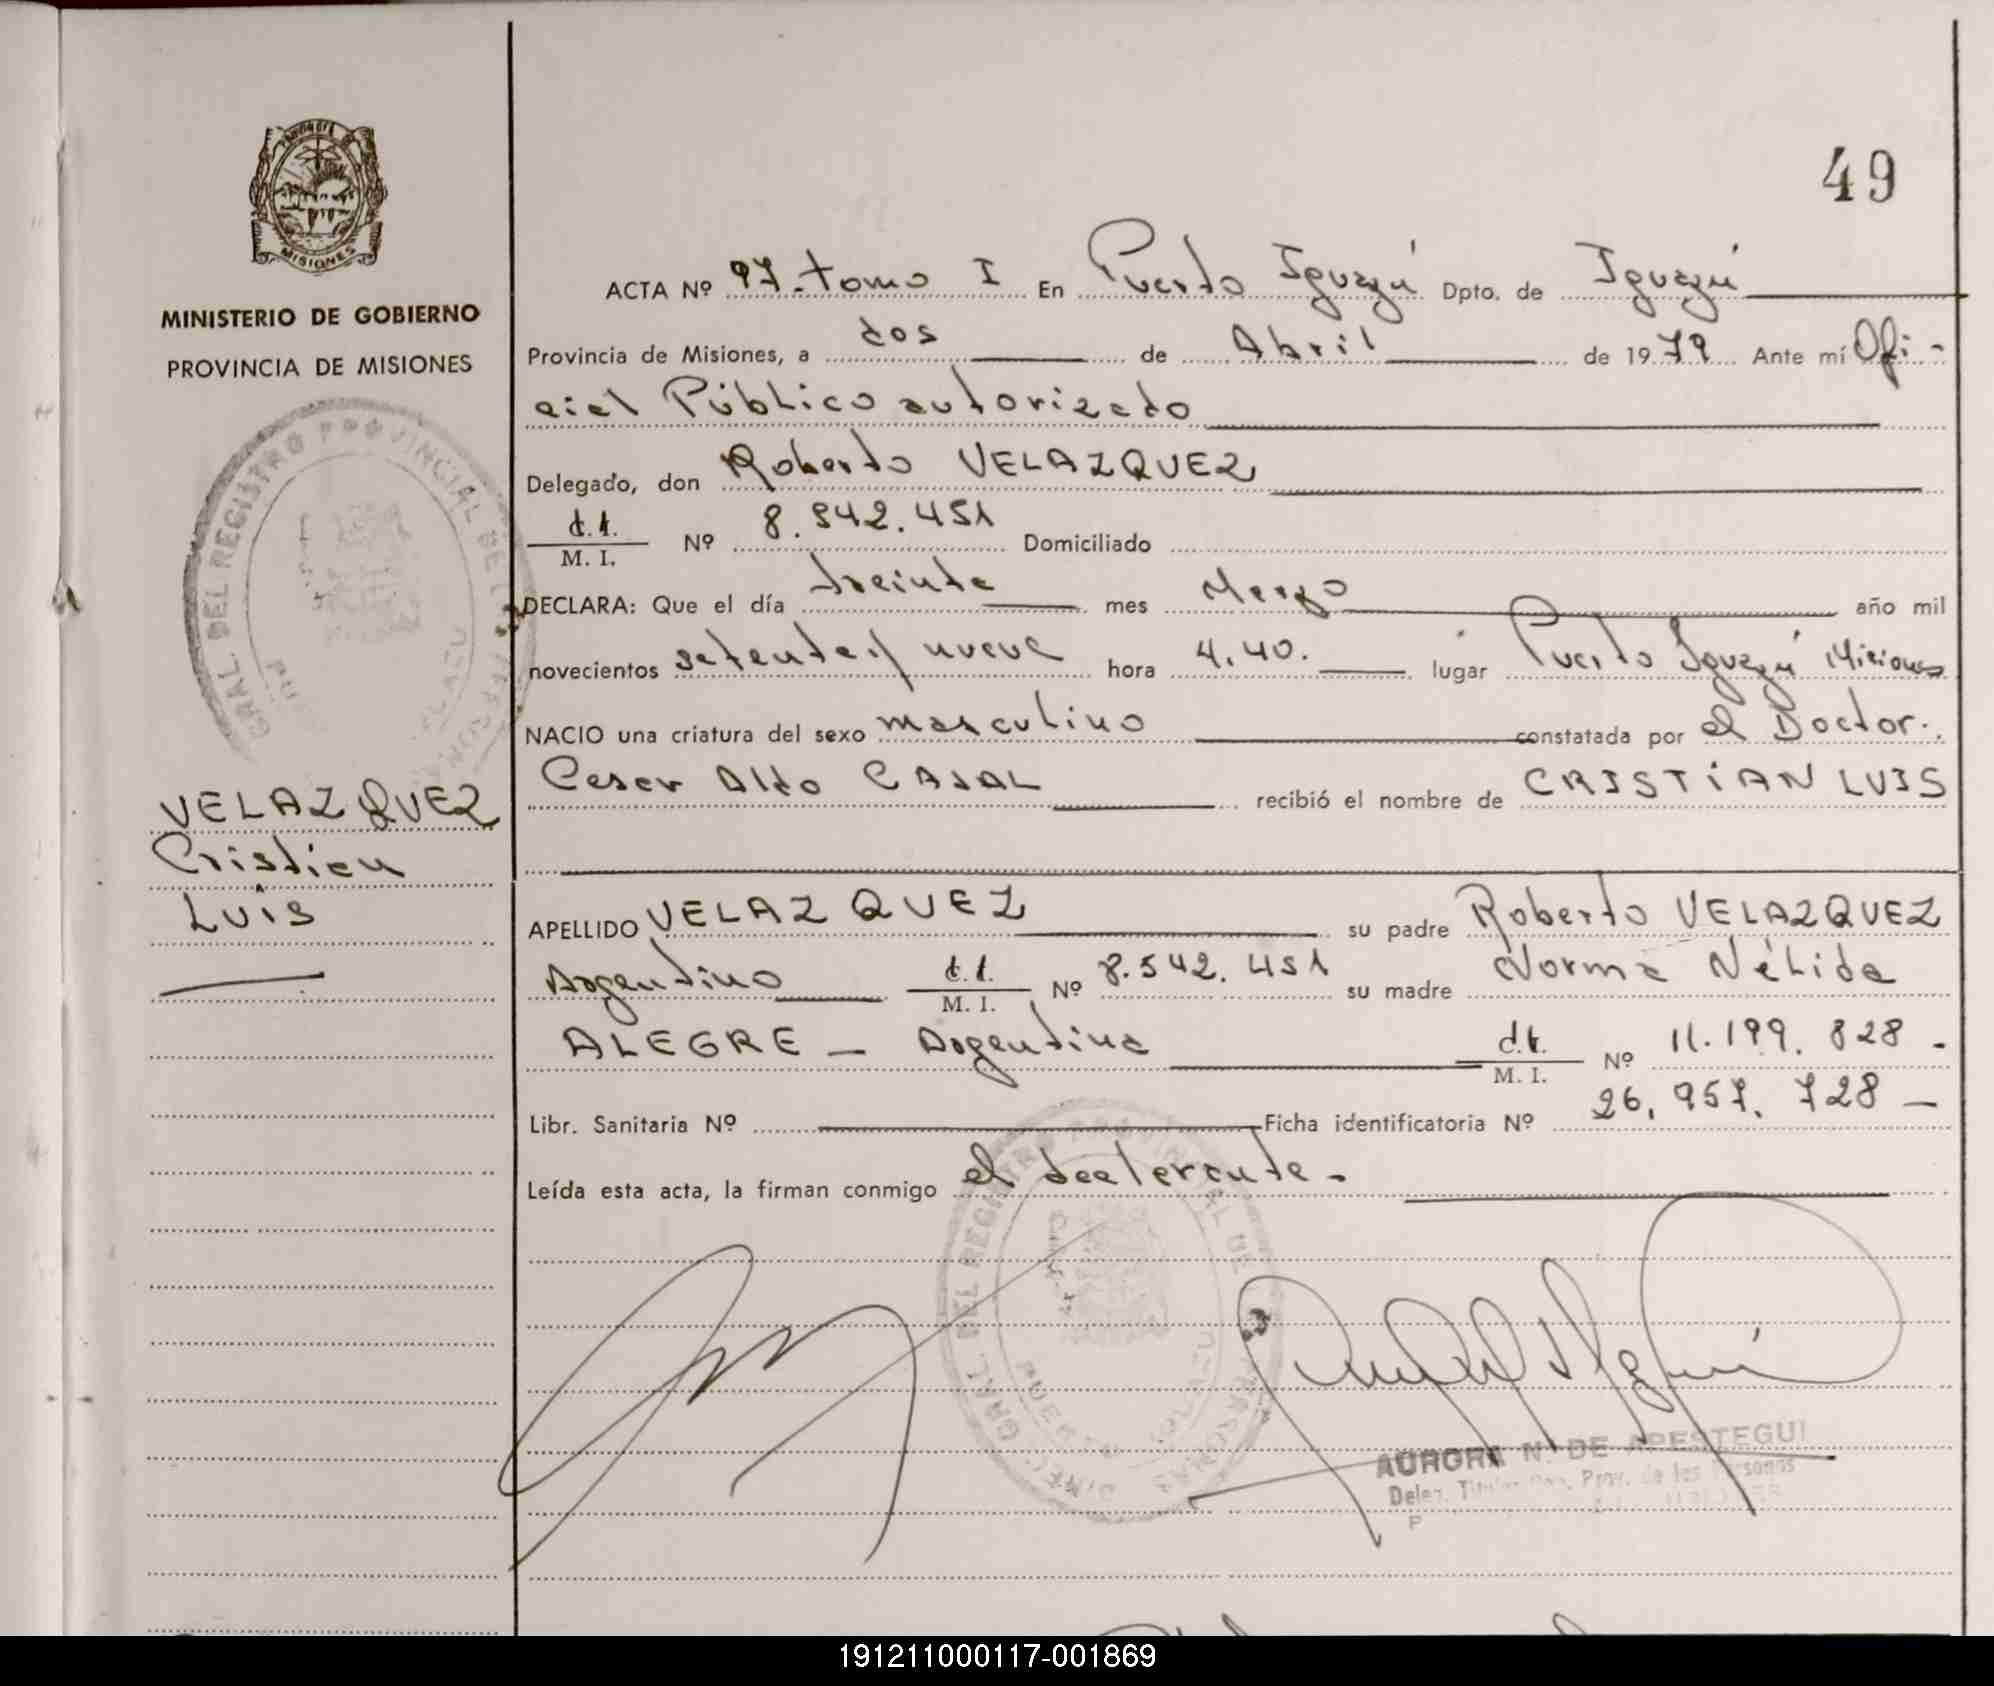 49
MINISTERIO DE GOBIERNO
PROVINCIA DE MISIONES
MISIONES
GRAL. DEL REGISTRO PROVINCIAL DE
VELAZQUEZ
Cristian
Luis
ACTA Nº 97 - tomo I En Puerto Iguazú Dpto. de Iguazú
Provincia de Misiones, a dos de Abril de 1979 Ante mí Ofi-
cial Público autorizado
Delegado, don Roberto VELAZQUEZ
d.t. M. I. Nº 8.542.451 Domiciliado
DECLARA: Que el día treinta mes Marzo año mil
novecientos setenta y nueve hora 4.40. lugar Puerto Iguazú Misiones
NACIO una criatura del sexo masculino constatada por el Doctor.
Cesar Aldo CASAL recibió el nombre de CRISTIAN LUIS
APELLIDO VELAZQUEZ su padre Roberto VELAZQUEZ
Argentino d.t. M. I. Nº 8.542.451 su madre Norma Nélida
ALEGRE - Argentina d.t. M. I. Nº 11.199.828 -
Libr. Sanitaria Nº Ficha identificatoria Nº 26.957.728 -
Leída esta acta, la firman conmigo el declarante -
GRAL. DEL REGISTRO PROVINCIAL DE
AURORA N. DE APESTEGUI
Prov. de las Personas
191211000117-001869